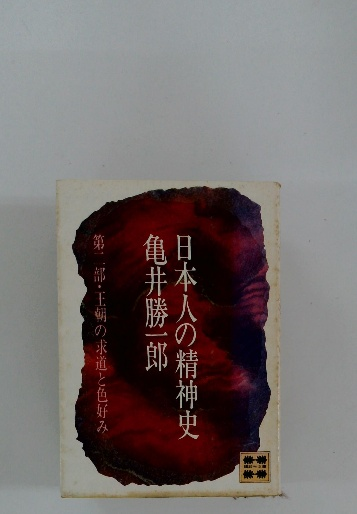 日本人の精神史
亀井勝一郎
第二部・王朝の求道と色好み